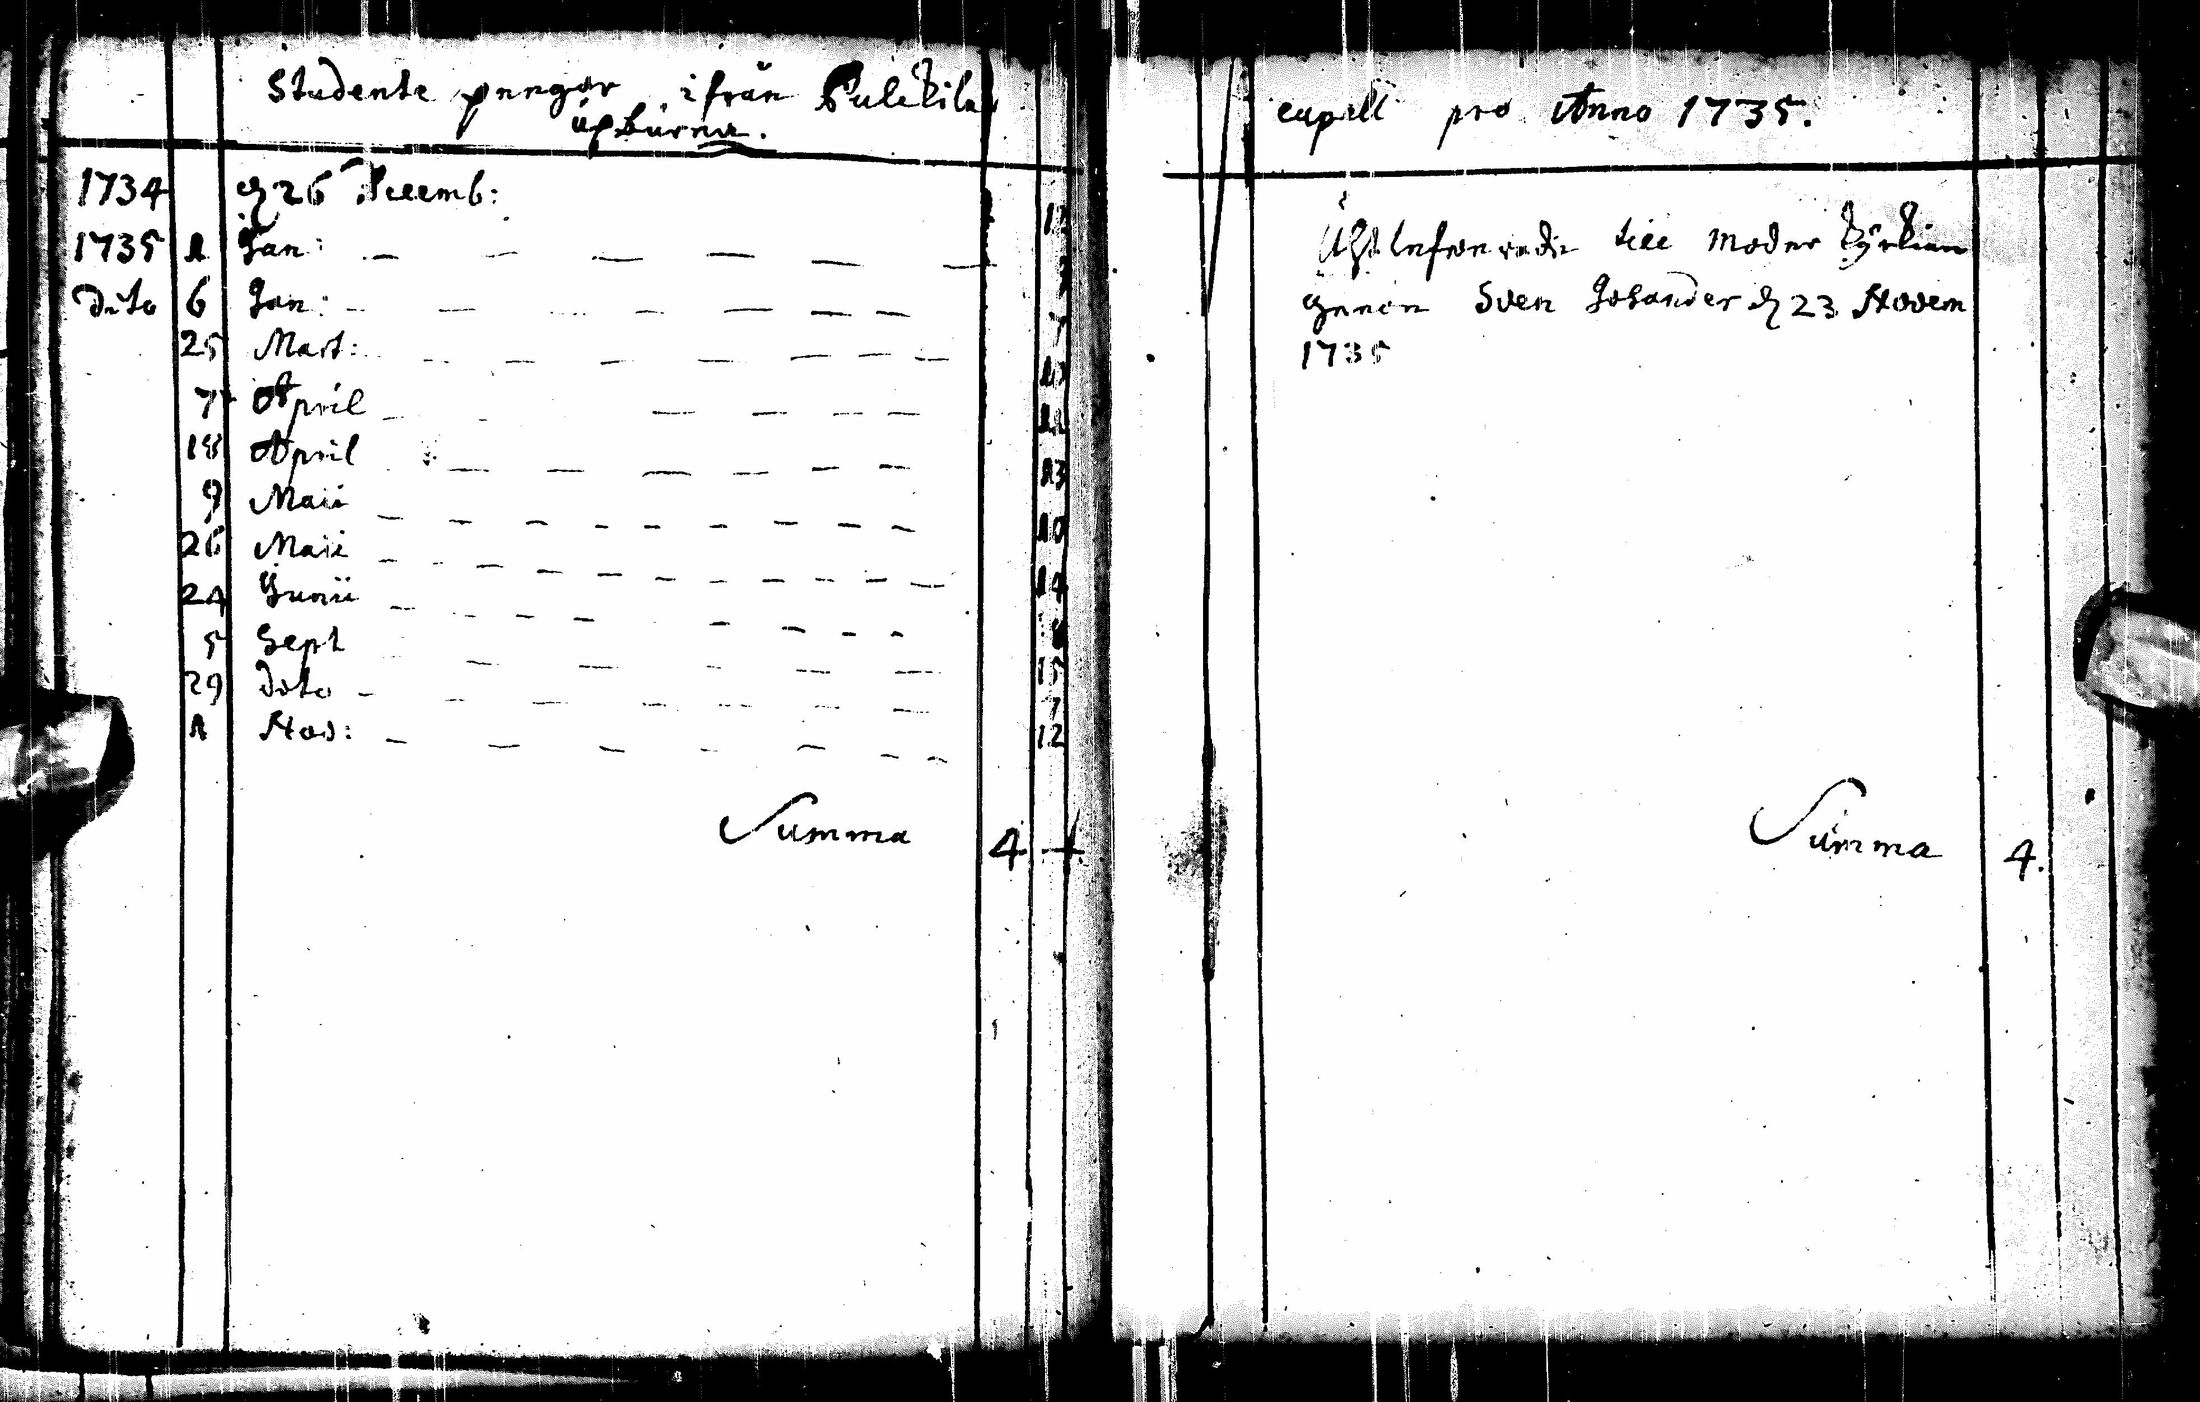 Studente pengar ifrån Pulkkila
upburna.
1734 d 26 Decemb:
1735 1 Jan: 
dito 6 Jan: 7
25 Mart: 10
7 April 11
18 April 13
9 Maii 10
26 Maii 14
24 Junii 8
5 Sept 15
29 dito 7
1 Nov: 12
Summa 4
capell pro Anno 1735.
till moder kyrkian
genom Sven Johander d 23 Novem
1735
Summa 4.